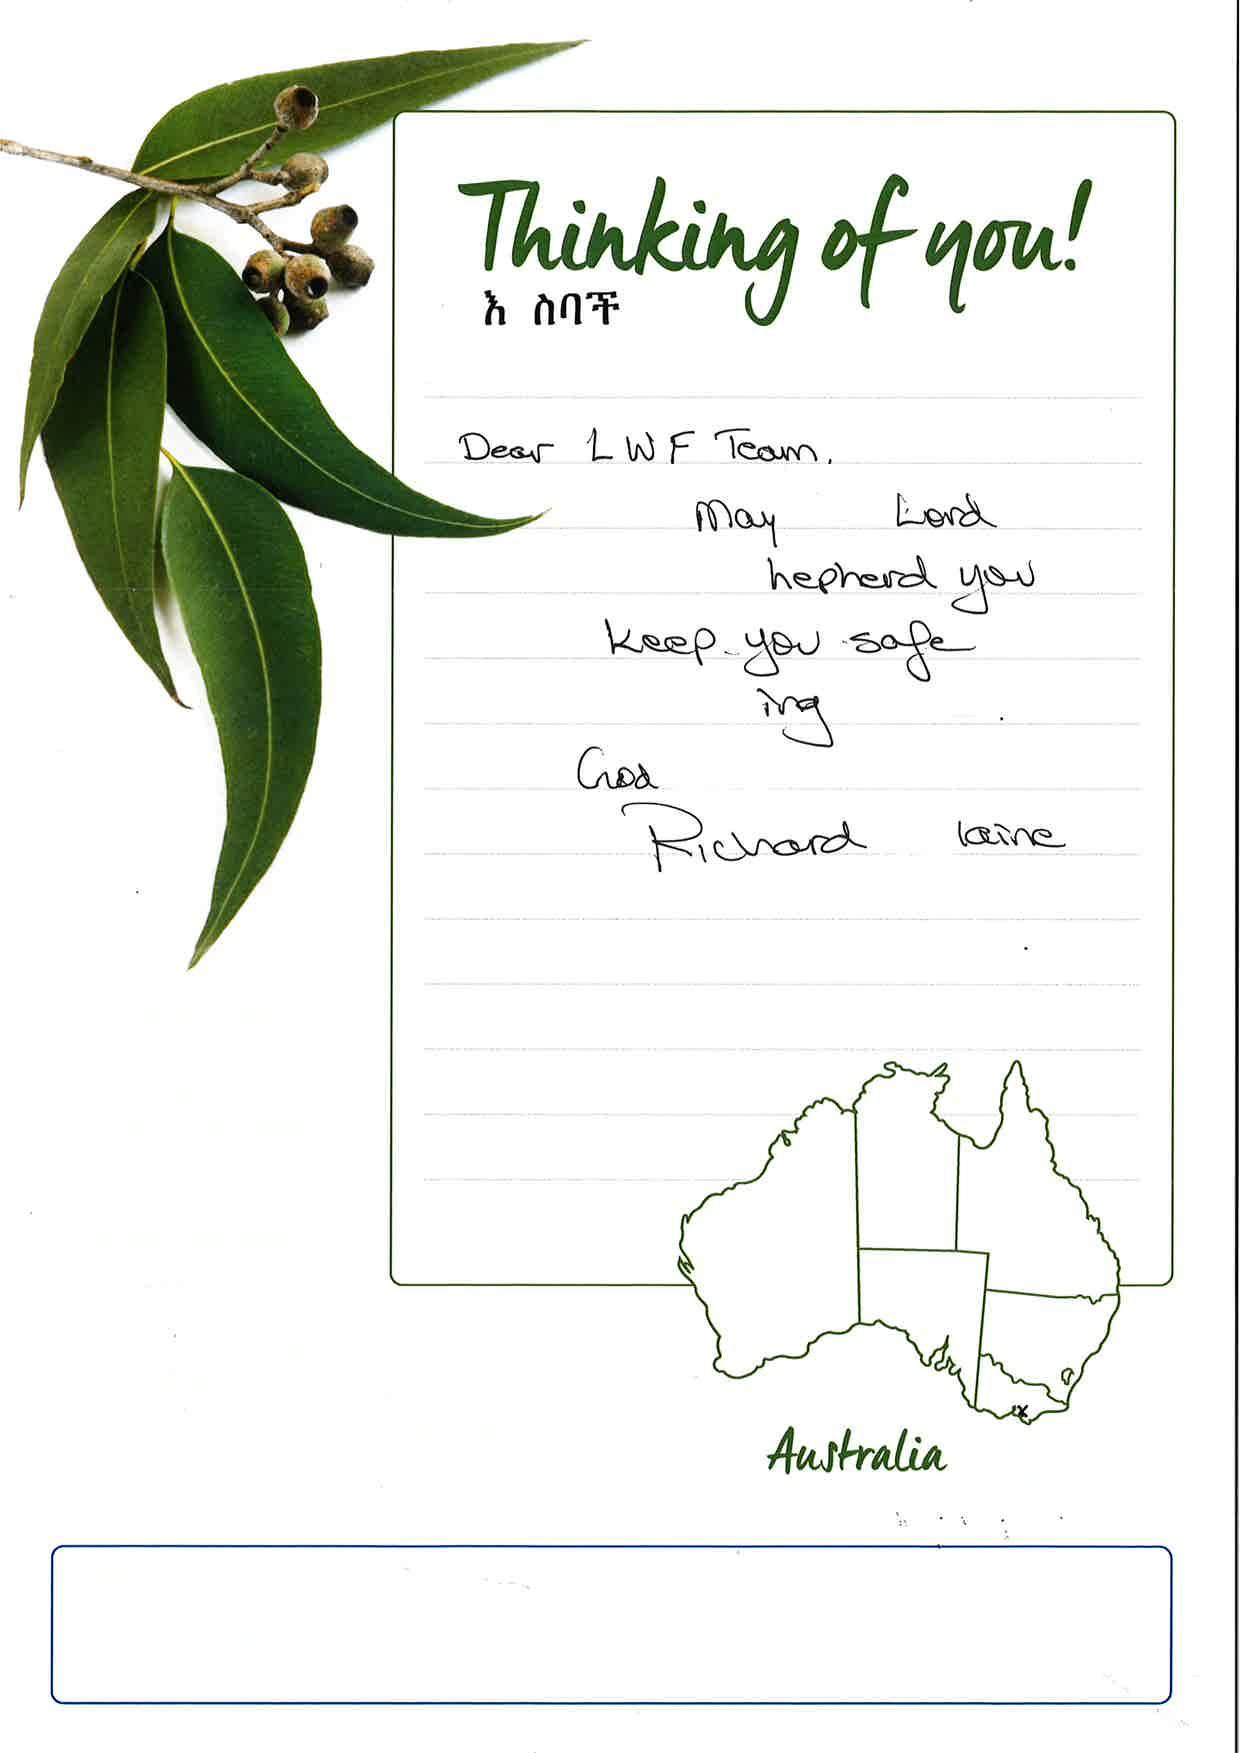 Thinking of you!
እ ስባች
Dear LWF Team,
May Lord
hepherd you
keep you safe
ing
God
Richard laine
Australia